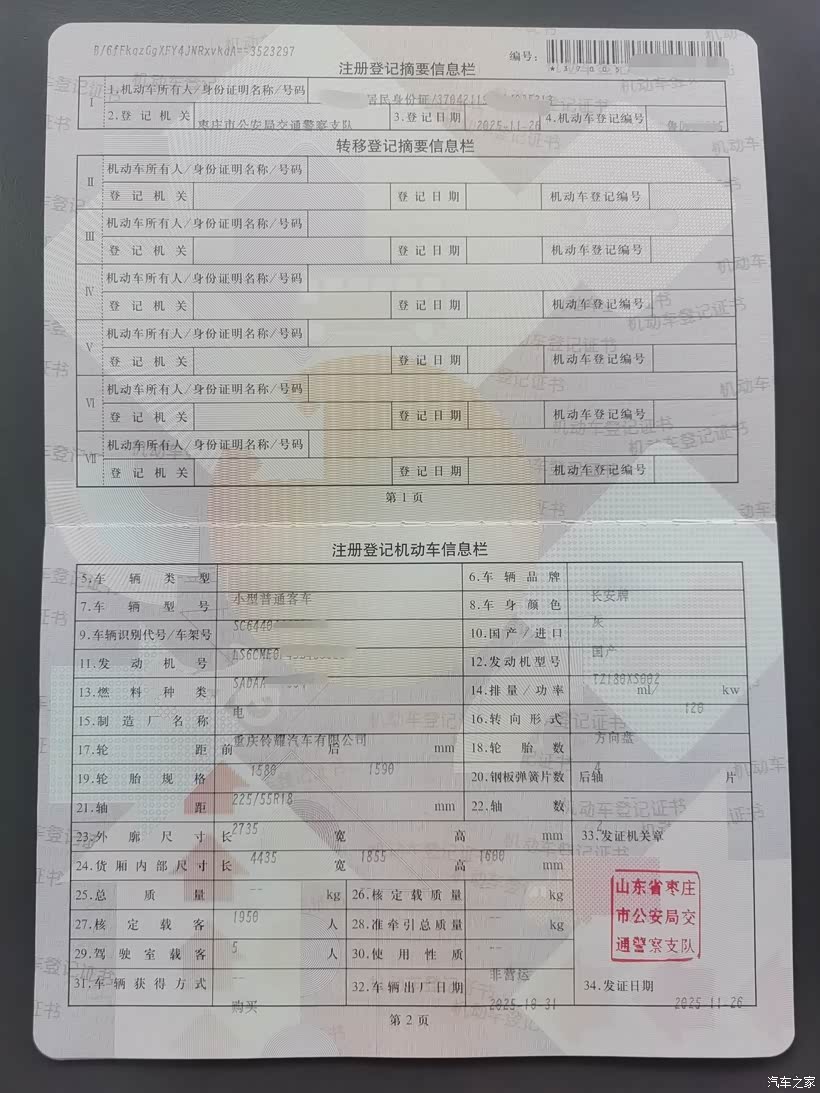 B/6fFkqzGgXFY4JNRxvkdA==3523297
编号：
注册登记摘要信息栏
Ⅰ
1.机动车所有人/身份证明名称/号码
居民身份证/
2.登记机关
枣庄市公安局交通警察支队
3.登记日期
2025-11-26
4.机动车登记编号
转移登记摘要信息栏
Ⅱ
机动车所有人/身份证明名称/号码
登记机关 登记日期 机动车登记编号
Ⅲ
机动车所有人/身份证明名称/号码
登记机关 登记日期 机动车登记编号
Ⅳ
机动车所有人/身份证明名称/号码
登记机关 登记日期 机动车登记编号
Ⅴ
机动车所有人/身份证明名称/号码
登记机关 登记日期 机动车登记编号
Ⅵ
机动车所有人/身份证明名称/号码
登记机关 登记日期 机动车登记编号
Ⅶ
机动车所有人/身份证明名称/号码
登记机关 登记日期 机动车登记编号
第 1 页
注册登记机动车信息栏
5.车辆类型 6.车辆品牌
小型普通客车 长安牌
7.车辆型号 8.车身颜色
灰
9.车辆识别代号/车架号 10.国产/进口
国产
11.发动机号 12.发动机型号
13.燃料种类 14.排量/功率 ml/ kw
电 120
15.制造厂名称 16.转向形式
重庆铃耀汽车有限公司 方向盘
17.轮距 前 后 mm 18.轮胎数
1580 1590 4
19.轮胎规格 20.钢板弹簧片数 后轴 片
225/55R18 --
21.轴距 mm 22.轴数
2735 2
23.外廓尺寸 长 宽 高 mm 33.发证机关章
4435 1855 1600
24.货厢内部尺寸 长 宽 高 mm
--
25.总质量 kg 26.核定载质量 kg
1950 --
27.核定载客 人 28.准牵引总质量 kg
5 --
29.驾驶室载客 人 30.使用性质
-- 非营运
31.车辆获得方式 32.车辆出厂日期 34.发证日期
购买 2025-10-31 2025-11-26
山东省枣庄
市公安局交
通警察支队
第 2 页
汽车之家